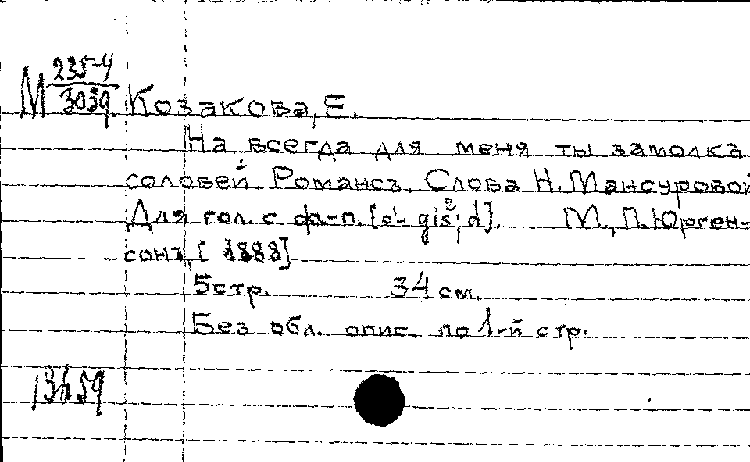 М 235-4/3039
Козакова, Е.
На всегда для меня ты замолкъ
соловей. Романсъ. Слова Н. Мансуровой
Для гол. с ф-п. [e'- gis²; d]. М., П. Юрген-
сонъ, [1888]
5 стр. 34 см.
Без обл. опис. по 1-й стр.